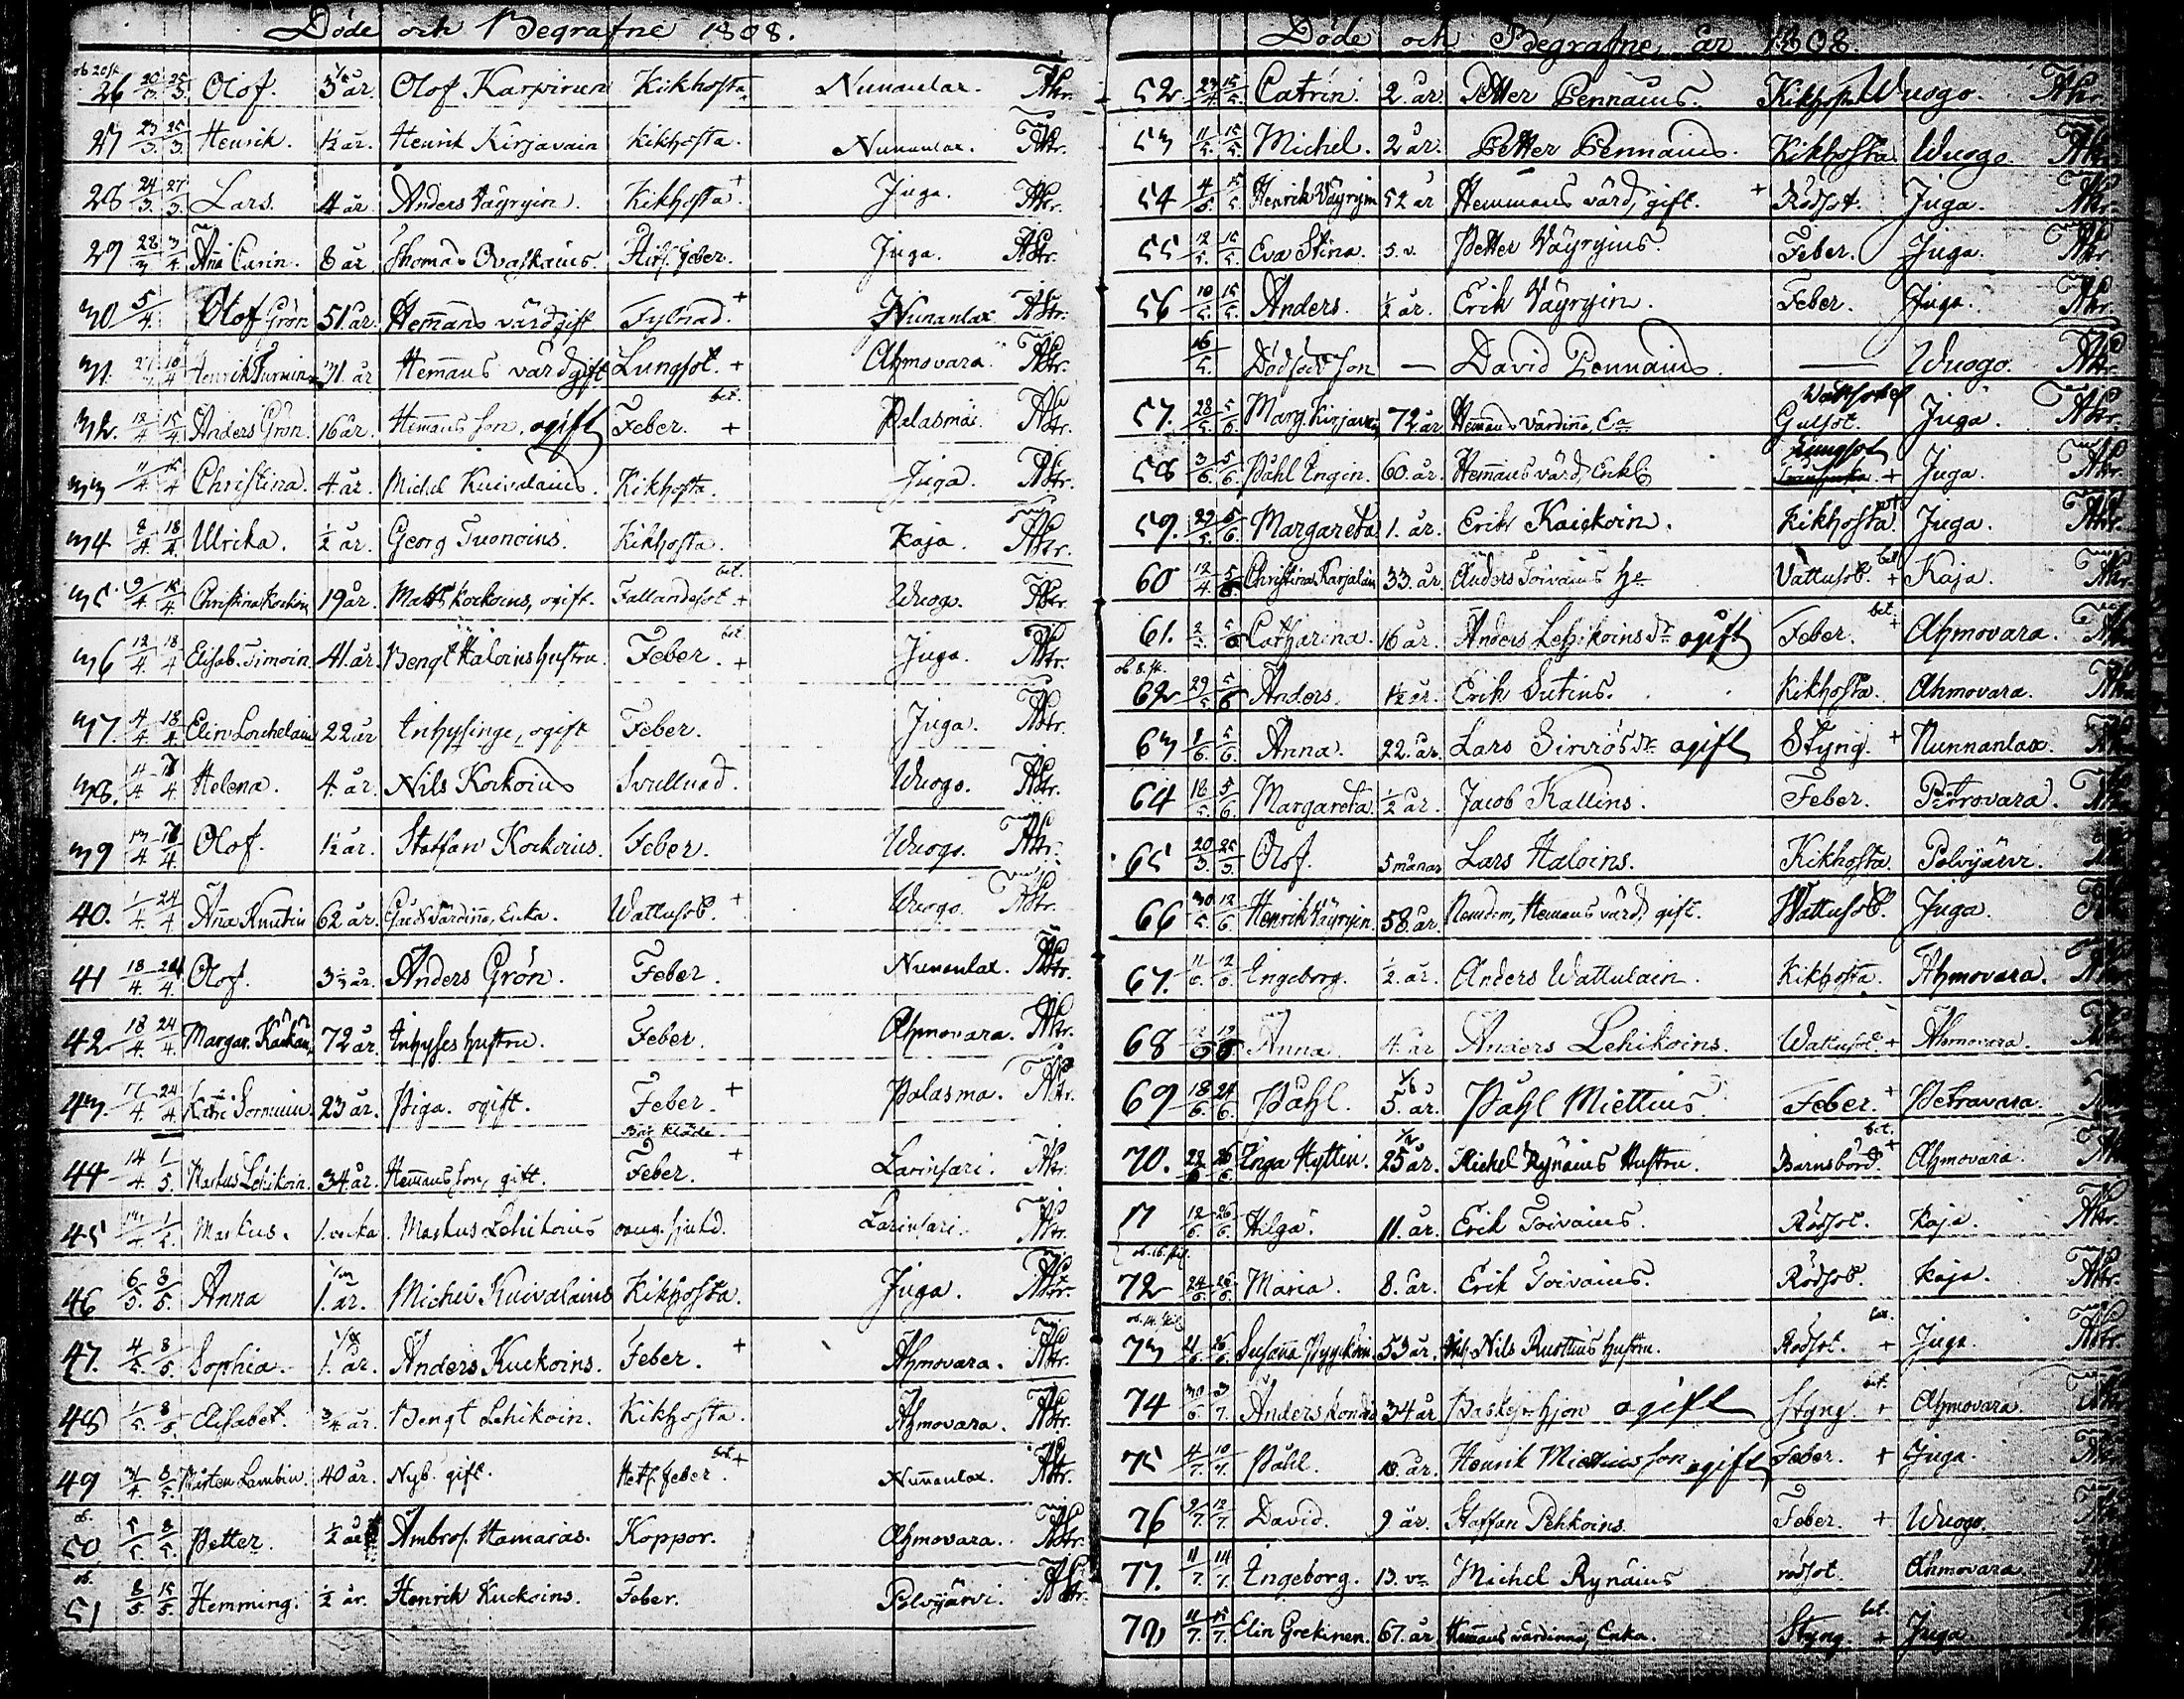 Döde och Begrafne 1808.
ob 20 st.
26 20/3. 25/3. Olof. 3 1/2 år. Olof Karvirinn Kikhosta Nunanlax.
27 23/3. 25/3. Henrik. 1½ år. Henrik Kirjavain Kikhosta. Nunanlax.
28 24/3. 27/3. Lars. 4 år. Anders Väyryin. Kikhosta + Juga.
29 28/3 3/4. Aña Carin. 8 år. Thomas Ovaskains. Hits. feber. Juga.
30 5/4. Olof Grön 51. år. Hem̃ans värd gift Fylnad. + Nunanlax
31. 27/3 10/4 Henrik Turuin 31. år Hem̃ans värd gift Lungsot. + Ahmovara.
32. 12/4 15/4. Anders Grön. 16 år. Hem̃ans son, ogift Feber. bet. + Palasmä.
33 11/4. 15/4 Christina. 4. år. Michel Kuivalains. Kikhosta. Juga.
34 8/4. 18/4. Ulrika. ½ år. Georg Tuonoins. Kikhosta. Kaja.
35. 9/4. 15/4. Christina Kockoin 19 år. Matts Kockoins, ogift. Fallandesot bet. + Wuogo.
36 12/4. 18/4 Elisab. Timoin. 41. år. Bengt Haloins hustru. Feber. bet. + Juga.
37. 4/4. 18/4. Elin Lorchelain 22 år Inhysinge, ogift Feber. Juga.
38. 4/4 17/4. Helena. 4. år. Nils Kockoins Svullnad. Wuogo.
39 13/4 17/4. Olof. 1½ år. Staffan Kockoins. Feber. Wuogo.
40. 1/4. 24/4 Aña Knutin 62 år. Gårdvärdiña, Enka. Wattusot. + Wuogo.
41 18/4. 24/4. Olof. 3 ½ år. Anders Grön. Feber. Nunanlax.
42 18/4. 24/4. Margar. Kackain, 72 år. Inhyses hustru. Feber. Ahmovara.
43. 17/4. 24/4. Sormuin. 23 år. Piga. ogift. Feber. + Palasma.
44 14/4 1/5. Markus Lehikoin. 34 år. Hem̃ans son, gift. Feber. + Larinsari.
45 1/5. Markus. 1. vecka. Markus Lehikoins Larinsari.
46 6/5. 8/5. Anna 1. år. Michel Kuivalains Kikhosta. Juga.
47. 4/5. 8/5. Sophia. 1. år. Anders Kuckoins. Feber. + Ahmovara.
48 1/5. 8/5. Elisabet. ¾ år. Bengt Lehikoin. Kikhosta. Ahmovara.
49 8/5. Kirsten Lambin. 40 år. Nyb. gift. Hets. feber. bet. + Nun̄anlax.
ob.
50 5/5. 8/5. Petter. ½ år Ambros. Hamaräs. Koppor. Ahmovara.
ob.
51 8/5 15/5. Hemming. ½ år. Henrik Kuckoins. Feber. Polvijärvi.
Döde och Begrafne år 1808.
52 23/4 15/5. Catrin. 2. år. Petter Pennains. Kikhosta Wuogo.
53 11/5. 15/5. Michel. 2 år. Petter Pennains. Kikhosta. Wuogo
54 4/5. 15/5 Henrik Väyryin 52 år Hemmans värd, gift. + Rödsot. Juga.
55 12/5. 15/5. Eva Stina. 5. v. Petter Väyryins. Feber. Juga.
56 10/5. 15/5. Anders. ½ år. Erik Väyryin. Feber. Juga.
16/5. Dödfödd son — David Pennains. — Wuogo.
57. 28/5. 5/6. Marg. Kirjavain, 72. år Hem̃ans värdiña, Ea Gulsot. Juga.
58 3/6. 5/6. Påhl Engin. 60. år. Hem̃ans värd, Enkl. Lungsot + Juga.
59. 29/5. 5/6. Margareta 1. år. Erik Kaickoin. Kikhosta. + Juga.
60 12/4. 5/6. Christina Karjalain 33. år. Anders Toivains Ho Vattusot. bet + Kaja.
61. 2/5. 5/6 Catharina. 16 år. Anders Lehikoins dr. ogift Feber. bet. + Ahmovara.
ob. 8. st.
62 29/5 5/6 Anders. 1½ år. Erik Sutins. Kikhosta. Ahmovara.
63 5/6. Anna. 22. år. Lars Sirviös dr. ogift Styng. + Nunnanlax.
64 18/5. 5/6. Margareta. ½ år. Jacob Kallins. Feber. Petrovara.
65 20/3. 25/3. Olof. 5 månar Lars Haloins. Kikhosta. Polvijärvi.
66 30/5. 12/6. Henrik Väyryin. 58. år. Nemdem, Hemans värd, gift. Wattusot. Juga.
67. 11/6. 12/6. Engeborg. ½. år. Anders Wattulain. Kikhosta. Ahmovara.
68 Anna 4. år Anders Lehikoins. Wattusot. + Ahmovara.
69 18/6. 24/6. Påhl. 5. år. Påhl Miettins Feber. + Petravara.
70. 22/6 26/6. Inga Hyttin. 25 år. Michel Rynäins Hustru. Barnsbörd. bet. + Ahmovara.
71 12/6. 26/6. Helga. 11. år. Erik Toivains. Rödsot. Kaja.
72 24/6. 26/6. Maria. 8. år. Erik Toivains. Rödsot. Kaja.
73 26/6. Susaña Pyyckoin. 53 år. Nils Ruottins hustru. Rödsot. + Juga.
74 30/6 3/7. Anders 34 år ogift Styng. bet. + Ahmovara.
75 4/7. 10/7. Påhl. 18. år. Henrik Miettins son, ogift Feber. + Juga.
76 9/7. 12/7. David. 9 år. Staffan Pehkoins. Feber. + Wuogo.
77. 11/7. 14/7. Ingeborg. 13. v. Michel Rynäins rödsot. Ahmovara
11/7. 15/7. Elin Grekinen. 67. år. Hem̃ans värdinna, Enka. Styng. bet. + Juga